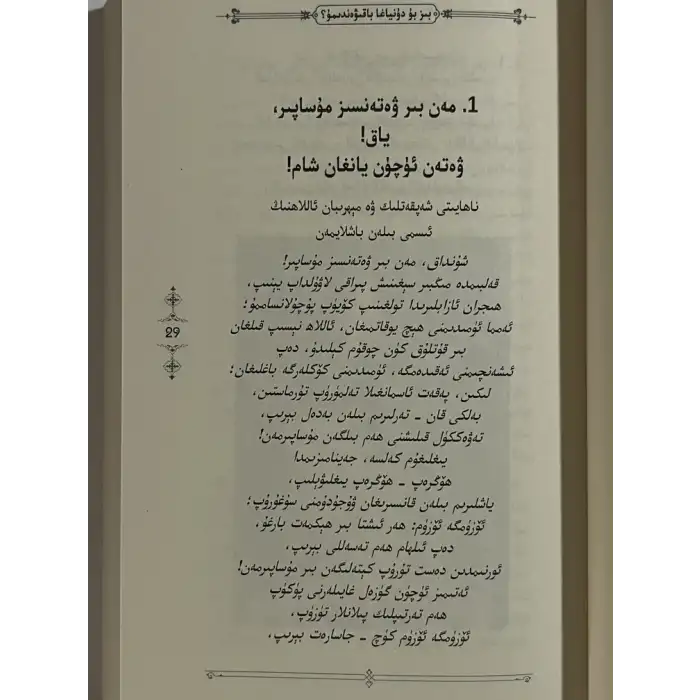 بىز بۇ دۇنياغا باقىۋەندىمۇ؟
1. مەن بىر ۋەتەنسىز مۇساپىر،
ياق!
ۋەتەن ئۈچۈن يانغان شام!
ناھايىتى شەپقەتلىك ۋە مېھرىبان ئاللاھنىڭ
ئىسمى بىلەن باشلايمەن
شۇنداق، مەن بىر ۋەتەنسىز مۇساپىر!
قەلبىمدە مىڭبىر سېغىنىش پىراقى لاۋۇلداپ يېنىپ،
ھىجران ئازابلىرىدا تولغىنىپ كۆيۈپ پۇچۇلانساممۇ؛
ئەمما ئۈمىدىمنى ھېچ يوقاتمىغان، ئاللاھ نېسىپ قىلغان
بىر قۇتلۇق كۈن چوقۇم كېلىدۇ، دەپ
ئىشەنچىمنى ئەقىدەمگە، ئۈمىدىمنى كۆكلەرگە باغلىغان؛
لىكىن، پەقەت ئاسمانغىلا تەلمۈرۈپ تۇرماستىن،
بەلكى قان - تەرلىرىم بىلەن بەدەل بېرىپ،
تەۋەككۈل قىلىشنى ھەم بىلگەن مۇساپىرمەن!
يىغلىغۇم كەلسە، جەينامىزىمدا
ھۆڭرەپ - ھۆڭرەپ يىغلىۋېلىپ،
ياشلىرىم بىلەن قانسىرىغان ۋۇجۇدۇمنى سۇغۇرۇپ؛
ئۆزۈمگە ئۆزۈم: ھەر ئىشتا بىر ھېكمەت بارغۇ،
دەپ ئىلھام ھەم تەسەللى بېرىپ،
ئورنىمدىن دەست تۇرۇپ كېتەلىگەن بىر مۇساپىرمەن!
ئەتىمىز ئۈچۈن گۈزەل غايىلەرنى پۈكۈپ
ھەم تەرتىپلىك پىلانلار تۈزۈپ،
ئۆزۈمگە ئۆزۈم كۈچ - جاسارەت بېرىپ،
29